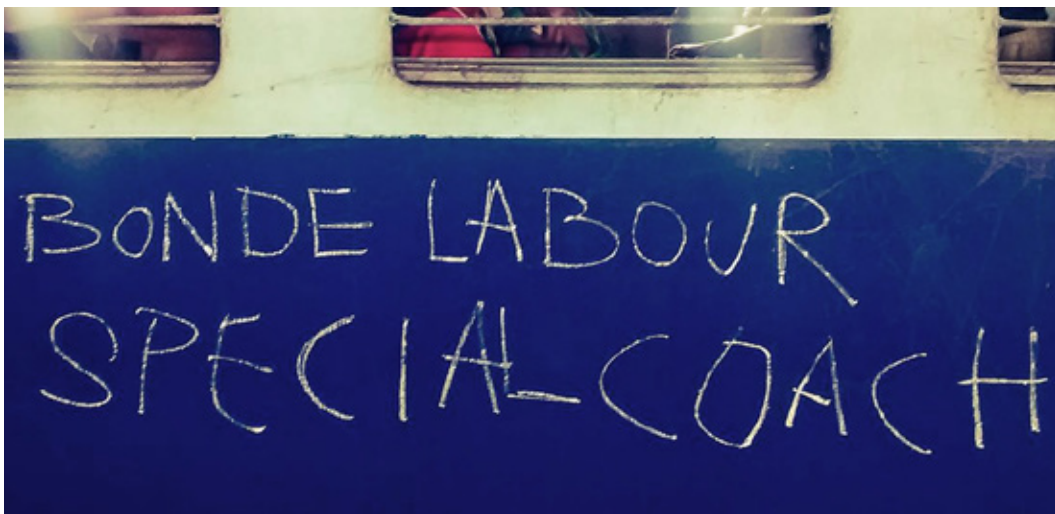 BONDE LABOUR
SPECIAL COACH